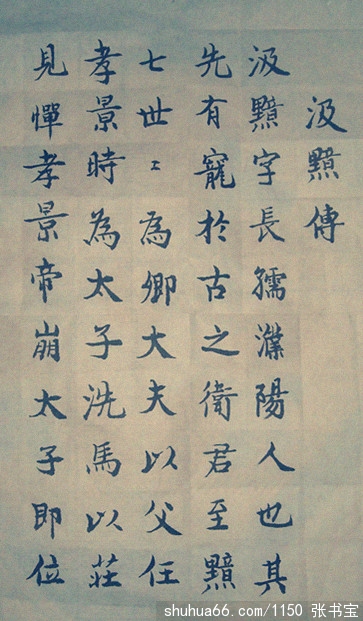 汲黯傳
汲黯字長孺濮陽人也其
先有寵於古之衛君至黯
七世〻為卿大夫以父任
孝景時為太子洗馬以莊
見憚孝景帝崩太子即位
shuhua66.com/1150 张书宝